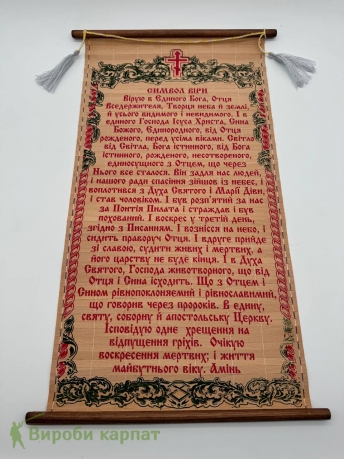 СИМВОЛ ВІРИ
Вірую в Єдиного Бога, Отця
Вседержителя, Творця неба й землі,
й усього видимого і невидимого. І в
єдиного Господа Ісуса Христа, Сина
Божого, Єдинородного, від Отця
рожденого, перед усіма віками. Світла
від Світла, Бога істинного, від Бога
істинного, рожденого, несотвореного,
єдиносущого з Отцем, що через
Нього все сталося. Він задля нас людей,
і нашого ради спасіння зійшов із небес, і
воплотився з Духа Святого і Марії Діви,
і став чоловіком. І був розп'ятий за нас
за Понтія Пилата і страждав і був
похований. І воскрес у третій день,
згідно з Писанням. І вознісся на небо, і
сидить праворуч Отця. І вдруге прийде
зі славою, судити живих і мертвих, а
його царству не буде кінця. І в Духа
Святого, Господа животворного, що від
Отця і Сина ісходить. Що з Отцем і
Сином рівнопоклоняємий і рівнославимий,
що говорив через пророків. В єдину,
святу, соборну й апостольську Церкву.
Ісповідую одне хрещення на
відпущення гріхів. Очікую
воскресення мертвих; і життя
майбутнього віку. Амінь
Вироби карпат